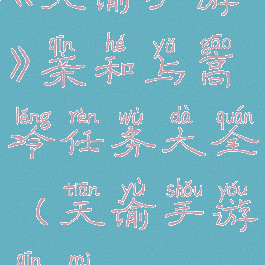 《天谕手游
qīn hé yǔ gāo
》亲和与高
lěng rèn wù dà quán
冷任务大全
tiān yù shǒu yóu
(天谕手游
qīn mì